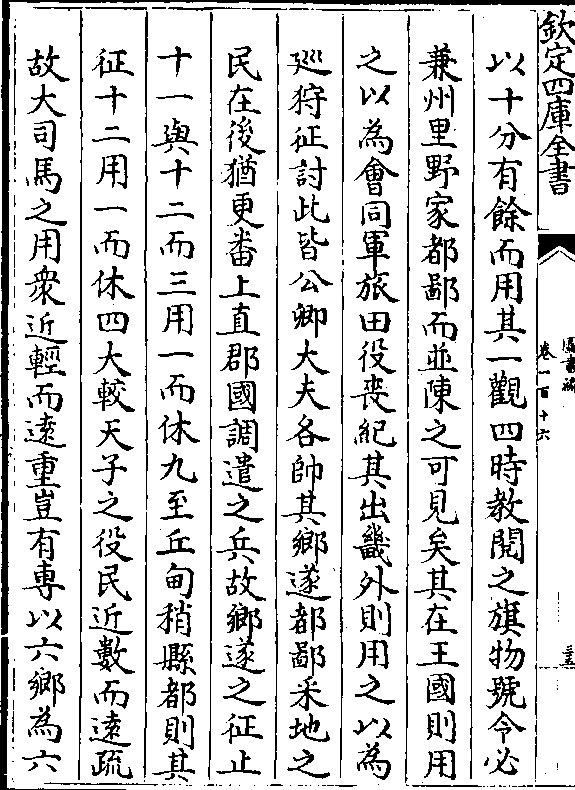 欽定四庫全書
圖書編
卷一百十六
以十分有餘而用其一觀四時教閱之旗物號令必
兼州里野家都鄙而並陳之可見矣其在王國則用
之以為會同軍旅田役喪紀其出畿外則用之以為
廵狩征討此皆公卿大夫各帥其鄉遂都鄙采地之
民在後猶更畨上直郡國調遣之兵故鄉遂之征止
十一與十二而三用一而休九至丘甸稍縣都則其
征十二用一而休四大較天子之役民近數而逺疏
故大司馬之用衆近輕而逺重豈有專以六鄉為六